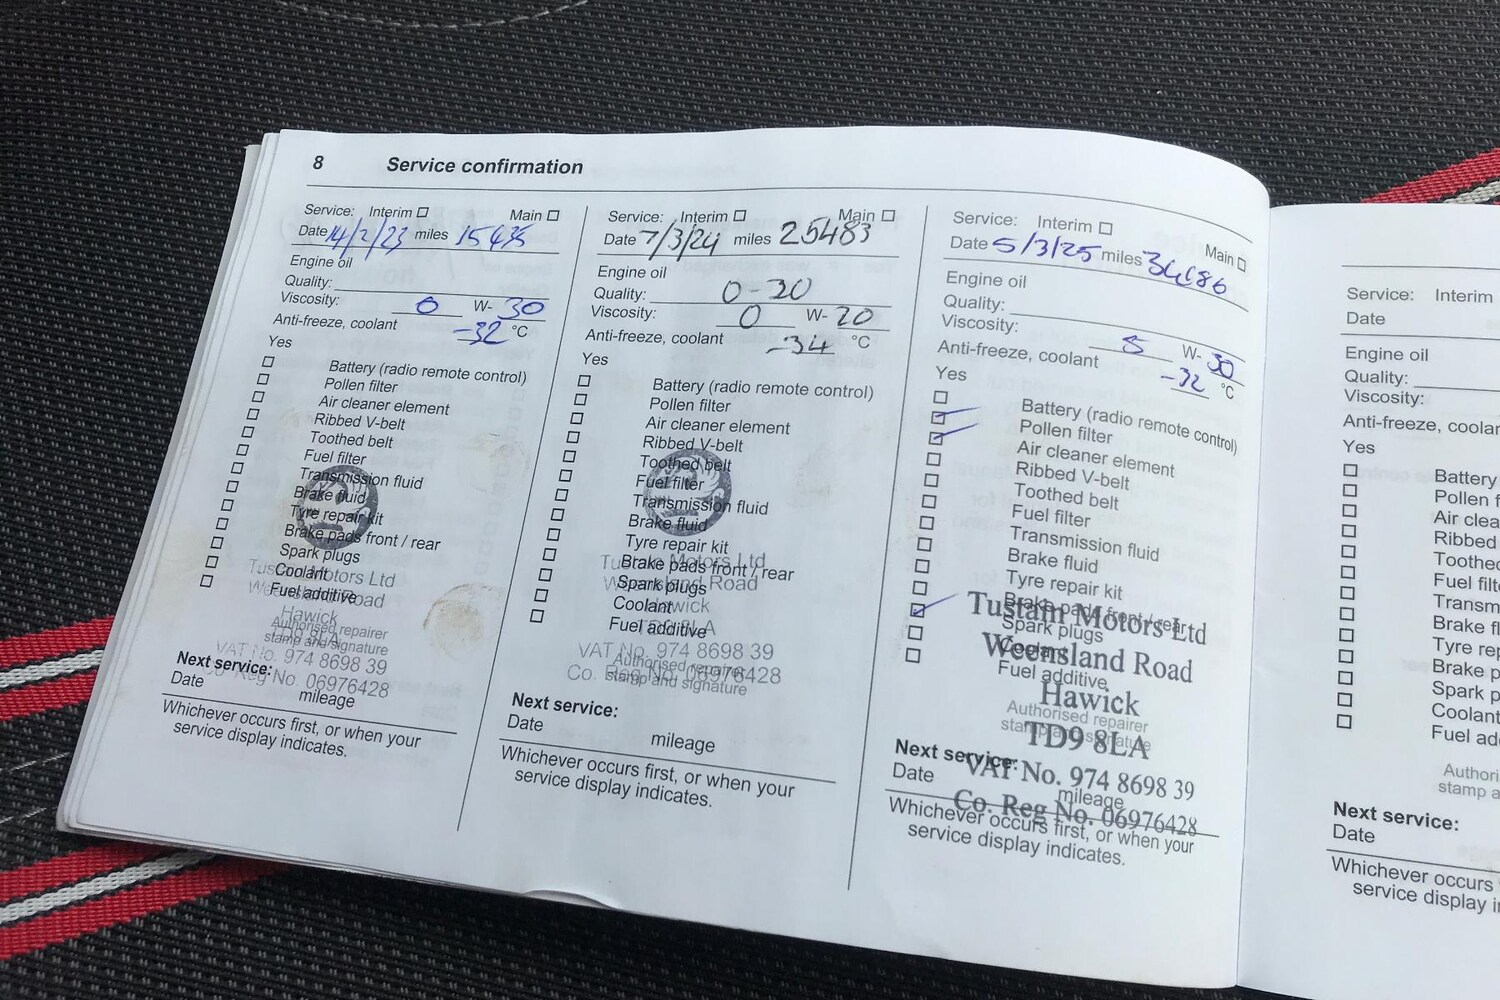 8 Service confirmation
Service: Interim Main
Date 14/2/23 miles 15435
Engine oil
Quality:
Viscosity: 0 W- 30
Anti-freeze, coolant -32 °C
Yes
Battery (radio remote control)
Pollen filter
Air cleaner element
Ribbed V-belt
Toothed belt
Fuel filter
Transmission fluid
Brake fluid
Tyre repair kit
Brake pads front / rear
Spark plugs
Coolant
Fuel additive
Tustain Motors Ltd
Weensland Road
Hawick
TD9 8LA
Authorised repairer
stamp and signature
VAT No. 974 8698 39
Co. Reg No. 06976428
Next service:
Date mileage
Whichever occurs first, or when your
service display indicates.
Service: Interim Main
Date 7/3/24 miles 25483
Engine oil
Quality: 0-20
Viscosity: 0 W- 20
Anti-freeze, coolant -34 °C
Yes
Battery (radio remote control)
Pollen filter
Air cleaner element
Ribbed V-belt
Toothed belt
Fuel filter
Transmission fluid
Brake fluid
Tyre repair kit
Brake pads front / rear
Spark plugs
Coolant
Fuel additive
Tustain Motors Ltd
Weensland Road
Hawick
TD9 8LA
VAT No. 974 8698 39
Authorised repairer
Co. Reg No. 06976428
stamp and signature
Next service:
Date mileage
Whichever occurs first, or when your
service display indicates.
Service: Interim Main
Date 5/3/25 miles
Engine oil
Quality:
Viscosity: 5 W- 30
Anti-freeze, coolant -32 °C
Yes
Battery (radio remote control)
Pollen filter
Air cleaner element
Ribbed V-belt
Toothed belt
Fuel filter
Transmission fluid
Brake fluid
Tyre repair kit
Brake pads front / rear
Spark plugs
Coolant
Fuel additive
Tustain Motors Ltd
Weensland Road
Hawick
TD9 8LA
VAT No. 974 8698 39
Co. Reg No. 06976428
Authorised repairer
stamp and signature
Next service:
Date mileage
Whichever occurs first, or when your
service display indicates.
Service: Interim
Date
Engine oil
Quality:
Viscosity:
Anti-freeze, coolan
Yes
Battery
Pollen f
Air clea
Ribbed
Toothed
Fuel filte
Transm
Brake fl
Tyre rep
Brake p
Spark p
Coolant
Fuel ad
Authori
stamp a
Next service:
Date
Whichever occurs
service display i